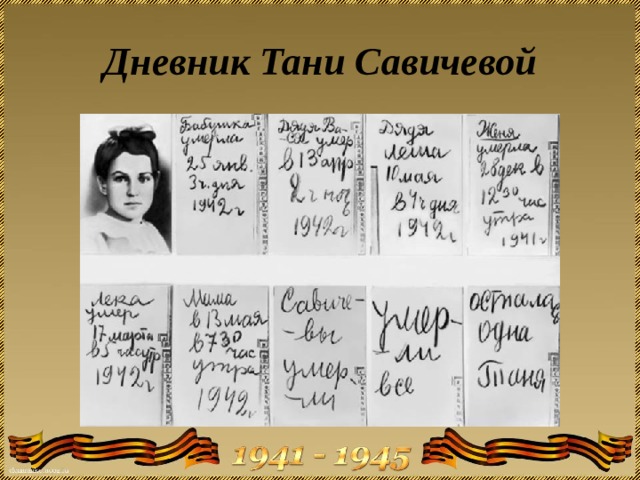 Дневник Тани Савичевой
Бабушка
умерла
25 янв.
3 ч. дня
1942 г
Дядя Ва-
ся умер
в 13 апр
2 ч ночь
1942 г
Дядя
Леша
10 мая
в 4 ч дня
1942 г
Женя
умерла
28 дек в
12 30 час
утра
1941 г
Лека
умер
17 марта
в 5 час утр
1942 г
Мама
в 13 мая
в 7 30
час
утра
1942 г
Савиче-
-вы
умер-
-ли
умер-
-ли
все
осталась
одна
Таня
1941 - 1945